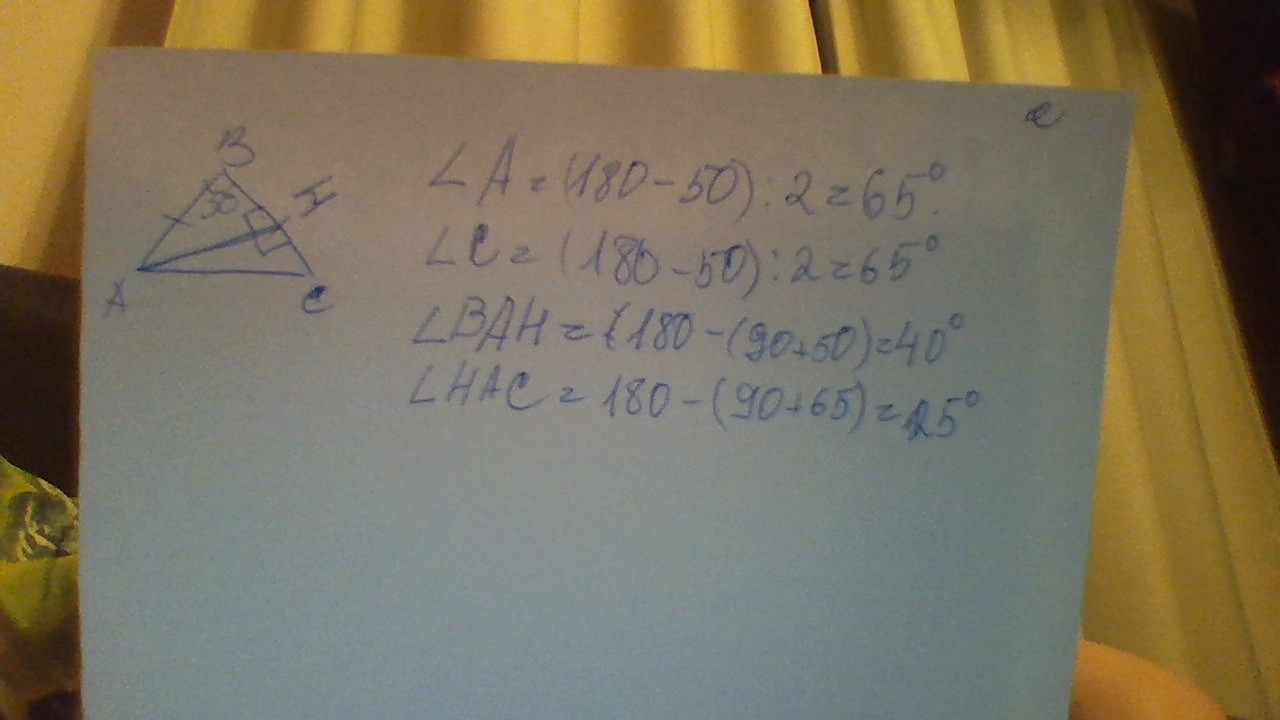 e
B
50
H
A
C
∠A = (180 - 50) : 2 = 65°.
∠C = (180 - 50) : 2 = 65°
∠BAH = (180 - (90+50) = 40°
∠HAC = 180 - (90+65) = 25°